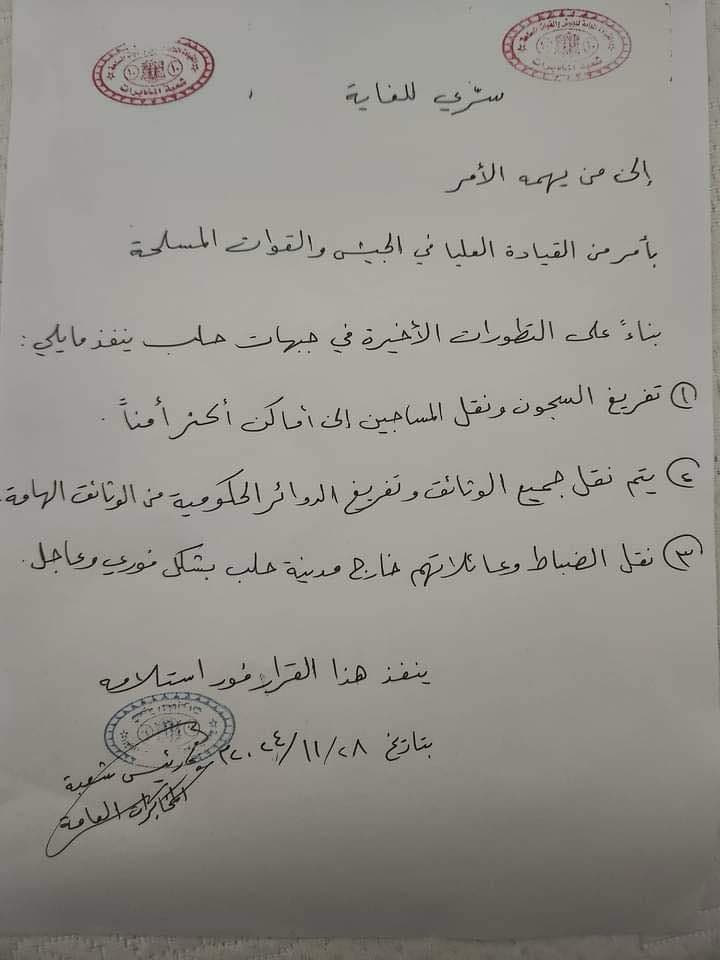 القيادة العامة للجيش والقوات المسلحة
شعبة المخابرات
القيادة العامة للجيش والقوات المسلحة
شعبة المخابرات
سرّي للغاية
إلى من يهمه الأمر
بأمر من القيادة العليا في الجيش والقوات المسلحة
بناءً على التطورات الأخيرة في جبهات حلب ينفذ مايلي:
١ تفريغ السجون ونقل المساجين إلى أماكن أكثر أمناً.
٢ يتم نقل جميع الوثائق وتفريغ الدوائر الحكومية من الوثائق الهامة.
٣ نقل الضباط وعائلاتهم خارج مدينة حلب بشكل فوري وعاجل.
ينفذ هذا القرار فور استلامه
بتاريخ ٢٠٢٤/١١/٢٨م
رئيس شعبة
المخابرات العامة